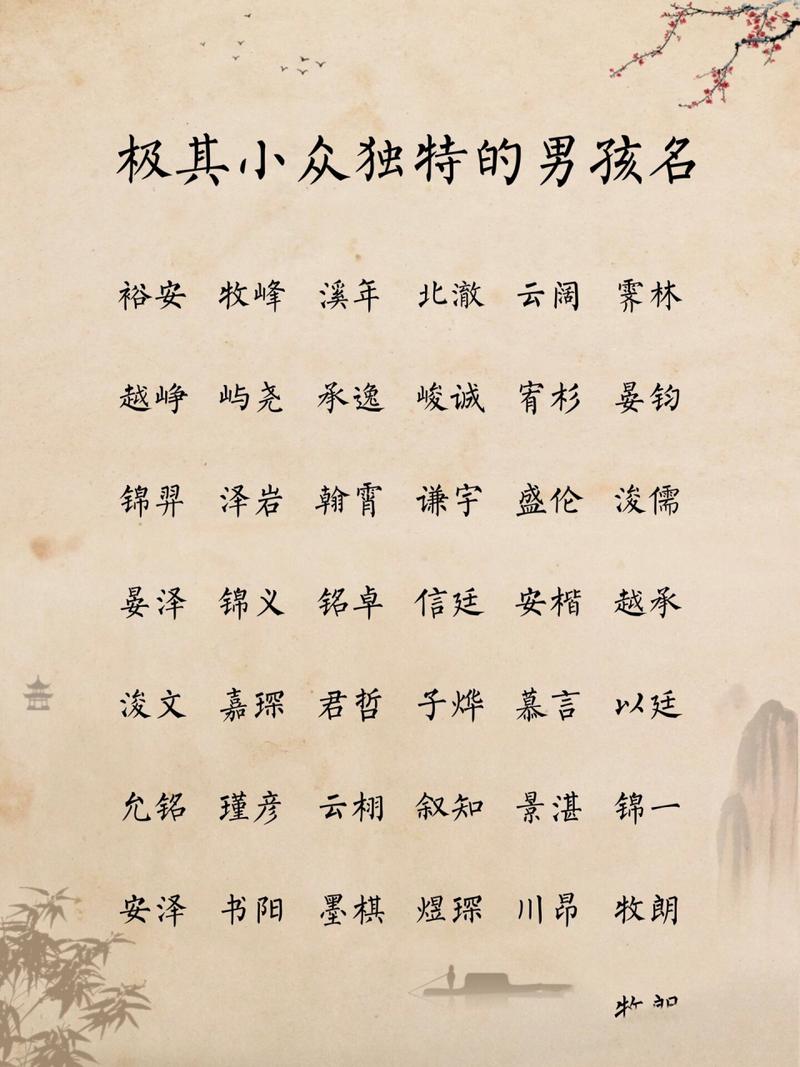 极其小众独特的男孩名
裕安 牧峰 溪年 北澈 云阔 霁林
越峥 屿尧 承逸 峻诚 宥杉 晏钧
锦羿 泽岩 翰霄 谦宇 盛伦 浚儒
晏泽 锦义 铭卓 信廷 安楷 越承
浚文 嘉琛 君哲 子烨 慕言 以廷
允铭 瑾彦 云栩 叙知 景湛 锦一
安泽 书阳 墨棋 煜琛 川昂 牧朗